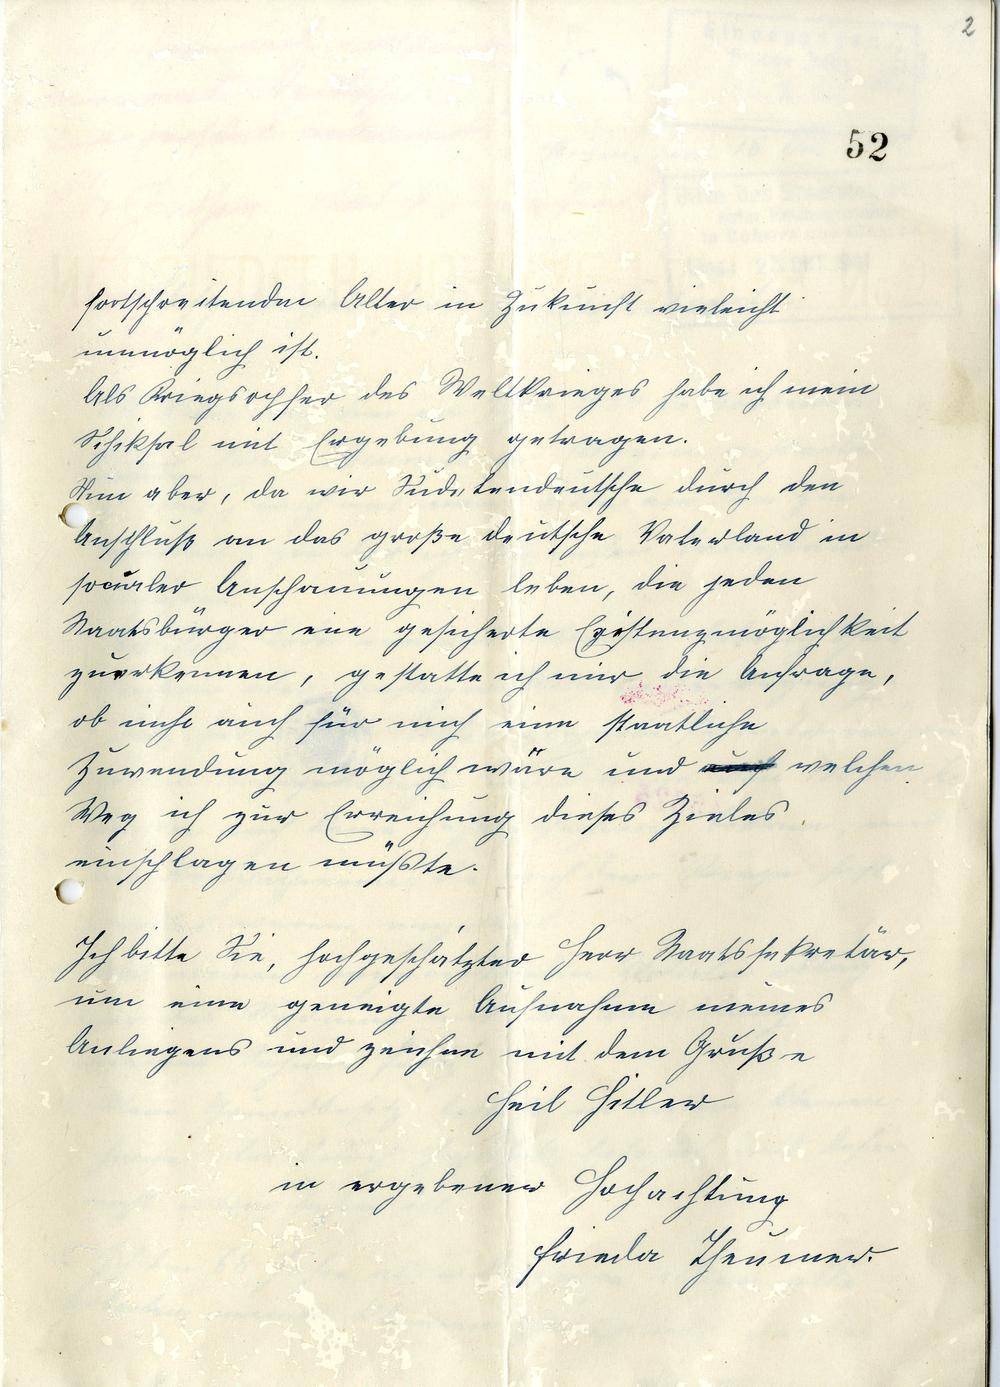 2
52
fortschreitenden Alter in Zukunft vieleicht
unmöglich ist.
Als Kriegsopfer des Weltkrieges habe ich mein
Schiksal mit Ergebung getragen.
Nun aber, da wir Sudetendeutsche durch den
Anschluß an das große deutsche Vaterland in
socialer Anschauungen leben, die jeden
Staatsbürger eine gesicherte Existenzmöglichkeit
zuerkennen, gestatte ich mir die Anfrage,
ob nicht auch für mich eine staatliche
Zuwendung möglich wäre und auf welchen
Weg ich zur Erreichung dieses Zieles
einschlagen müßte.
Ich bitte Sie, hochgeschätzter Herr Staatssekretär,
um eine geneigte Aufnahme meines
Anliegens und zeichne mit dem Gruße
Heil Hitler
in ergebener Hochachtung
Frieda Theumer.